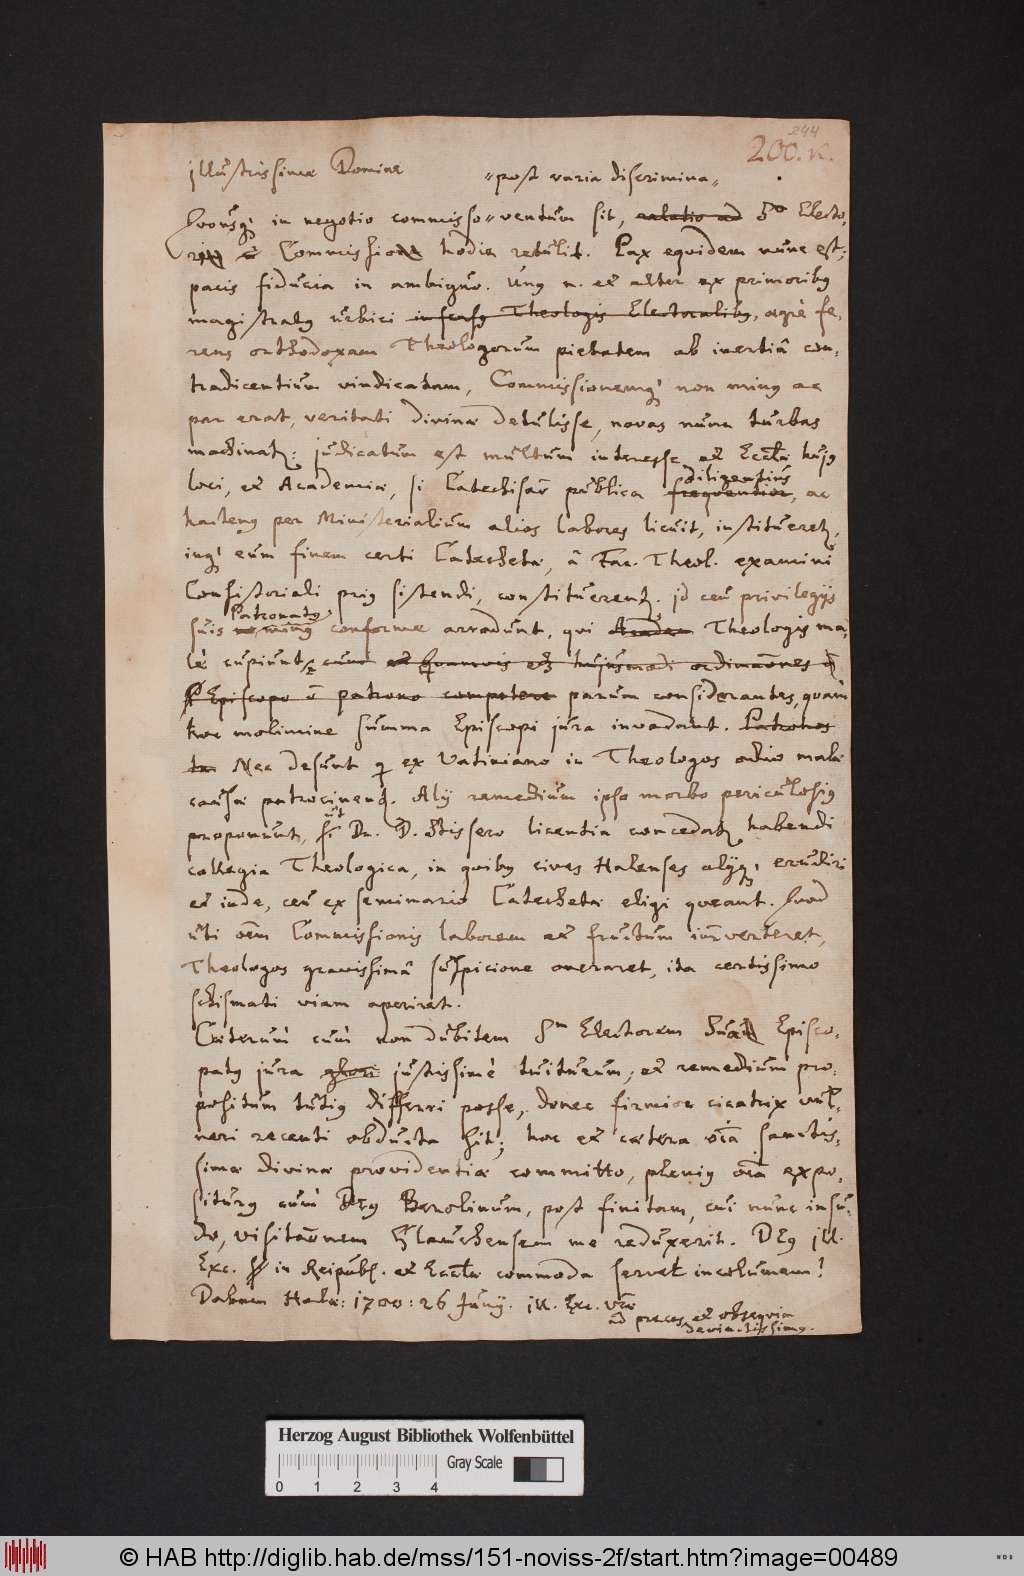 244
200. R.
Illustrissime Domine
"post varia discrimina"
Quousq; in negotio commisso" ventum sit, relatio ad S^o Electo,
Commission hodie retulit. Pax equidem nunc est;
pacis fiducia in ambiguo. Unq n. et alter ex primoribq
magistratq urbici infensq Theologis Electoralibq, aegrè fe,
rens orthodoxam Theologorum pietatem ab inertiâ con,
tradicentium vindicatam, Commissionemq; non minq ac
par erat, veritati divinae detulisse, novas nunc turbas
machinat: judicatum est multum interesse et Eccliae hujq
loci, et Academiae, si Catechisaõ publica frequentior diligentius, ac
hactenq per Ministerialium alios labores licuit, institueret,
inq; eum finem certi Catechetae, â Fac. Theol. examini
Consistoriali priq sistendi, constituerent. Id ceu privilegijs
suis Patronatq, minq conforme arrodunt, qui Theologis ma,
lè cupiunt, cum et hujusmodi ordinaões
Episcopo õ patrono competere parum considerantes, quàm
hoc molimine summa Episcopi jura invadant. Patronos
Nec desunt q ex Vatiniano in Theologos odio malae
causae patrocinent. Alij remedium ipso morbo periculosiq
proponunt, ut Dn. D. Stissero licentia concedat habendi
collegia Theologica, in quibq cives Halenses alijq; erudiri
et inde, ceu ex seminario Catechetae eligi queant. Quod
uti oẽm Commissionis laborem et fructum inverteret,
Theologos gravissimâ suspicione oneraret, ita certissimo
schismati viam aperiret.
Caeterum cùm non dubitem S^m Electorem sua Episco,
patq jura justissimè tuiturum; et remedium pro,
positum tutiq differri posse, donec firmior cicatrix vul,
neri recenti obducta sit; hoc et caetera oîa sanctis,
simae divinae providentiae committo, pleniq oîa expo,
siturq cùm Deq Berolinum, post finitam, cui nunc insu,
do, visitaõnem Glauchensem me reduxerit. DEq Ill.
Exc. in Reipubl. et Eccliae commoda servet incolumem!
Dabam Halae: 1700: 26 Junij. Ill. Exc. Vrae
ad preces et obsequia
devinctissimq.
Herzog August Bibliothek Wolfenbüttel
Gray Scale
0 1 2 3 4
© HAB http://diglib.hab.de/mss/151-noviss-2f/start.htm?image=00489
HAB